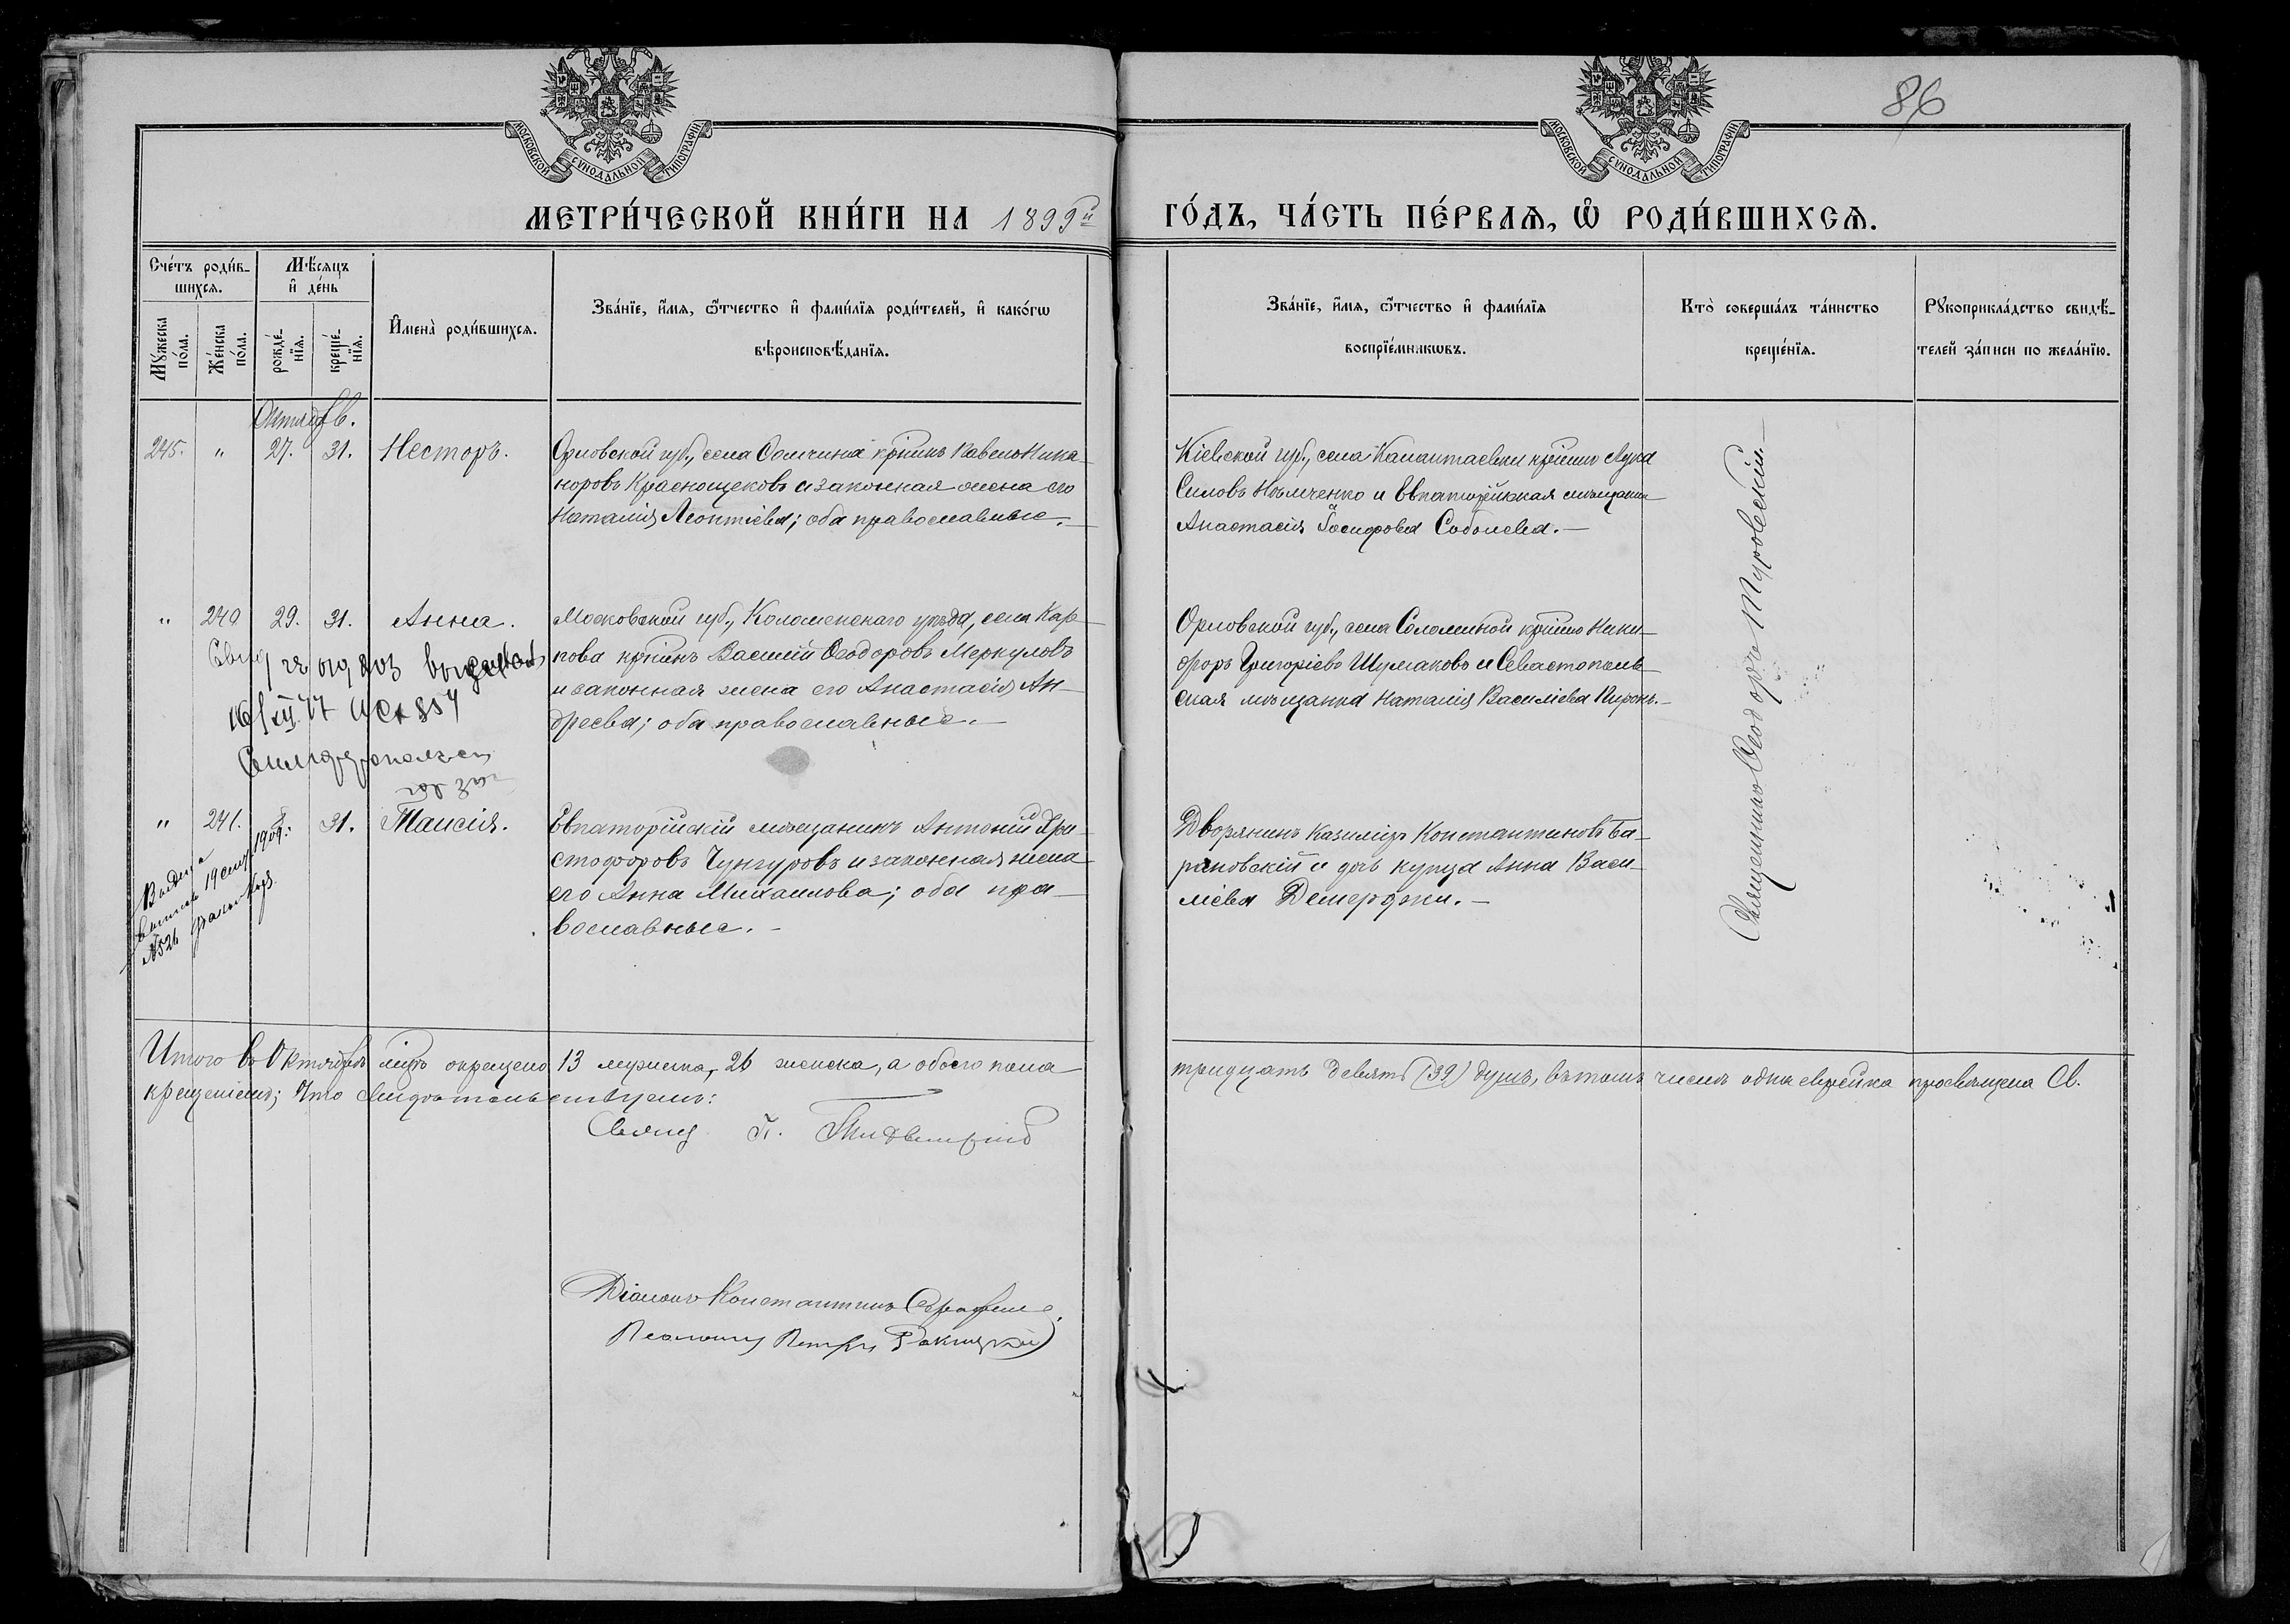 86
МОСКОВСКОЙ СѴНОДАЛЬНОЙ ТИПОГРАФІИ
МОСКОВСКОЙ СѴНОДАЛЬНОЙ ТИПОГРАФІИ
МЕТРИ́ЧЕСКОЙ КНИ́ГИ НА 1899й ГО́ДЪ, ЧА́СТЬ ПЕ́РВАЯ, Ѽ РОДИ́ВШИХСЯ.
Сче́тъ роди́вшихся.
Му́жеска по́ла.
Же́нска по́ла.
Мѣ́сяцъ и҆ де́нь
рожде́нїя.
креще́нїя.
И҆мена̀ роди́вшихся.
Зва́нїе, и҆́мя, ѻ҆́тчество и҆ фами́лїя роди́телей, и҆ како́гѡ
вѣроисповѣ́данїя.
Зва́нїе, и҆́мя, ѻ҆́тчество и҆ фами́лїя
воспрїе́мникѡвъ.
Кто̀ соверша́лъ та́инство
креще́нїя.
Рꙋкоприкла́дство свидѣ́-
телей за́писи по жела́нїю.
Октябв.
245. " 27. 31. Несторъ.
Орловской губ., села кр͞нинъ Павелъ Ника-
норовъ Краснощековъ и законная жена его
Наталія Леонтіева; оба православные.
Кіевской губ., села Калантаевки Лука
Силовъ и Евпаторійская мѣщанка
Анастасія Іосифова Соболева.—
" 240 29. 31. Анна.
Московской губ., Коломенскаго уѣзда, села Кар-
пова Василій Ѳеодоровъ Меркуловъ
и законная жена его Анастасія Ан-
дреева; оба православные.—
Орловской губ., села Соломиной Ники-
форъ Григоріевъ Шумаковъ и Севастополь-
ская мѣщанка Наталія Василіева
" 241. 31. Таисія.
Евпаторійскій мѣщанинъ Антоній Хри-
стофоровъ Чунгуровъ и законная жена
его Анна Михаилова; оба пра-
вославные.-
Дворянинъ Казиміръ Константиновъ Ба-
рановскій и дочь купца Анна Васи-
ліева Демерджи.—
Священникъ Ѳеодоръ
1909
№526
Итого въ Октябрѣ м͞цѣ окрещено 13 мужеска, 26 женска, а обоего пола тридцать девять (39) душъ, въ томъ числѣ одна еврейка просвѣщена Св.
крещеніемъ; Что свидѣтельствуемъ:
Свящ.
Діаконъ Константинъ
Псаломщ. Петръ Ракицкій